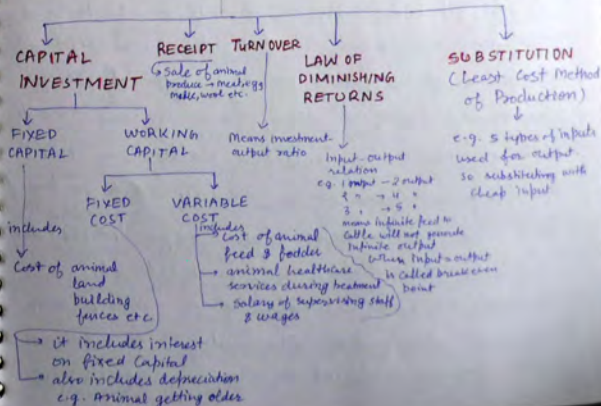 CAPITAL
INVESTMENT
FIXED
CAPITAL
includes
Cost of animal
land
building
fences etc.
WORKING
CAPITAL
FIXED
COST
it includes interest
on fixed Capital
also includes depreciation
e.g. Animal getting older
VARIABLE
COST
includes
Cost of animal
feed & fodder
animal healthcare
services during treatment
Salary of supervising staff
& wages
RECEIPT
Sale of animal
produce → meat, egg
wool etc.
TURNOVER
Means investment-
output ratio
LAW OF
DIMINISHING
RETURNS
Input-output
relation
e.g. 1 input - 2 output
2 " → 4 "
3 " → 5 "
means infinite feed to
cattle will not generate
infinite output
When Input = output
is called break even
point
SUBSTITUTION
(Least Cost Method
of Production)
e.g. 5 types of inputs
used for output
so substituting with
cheap input